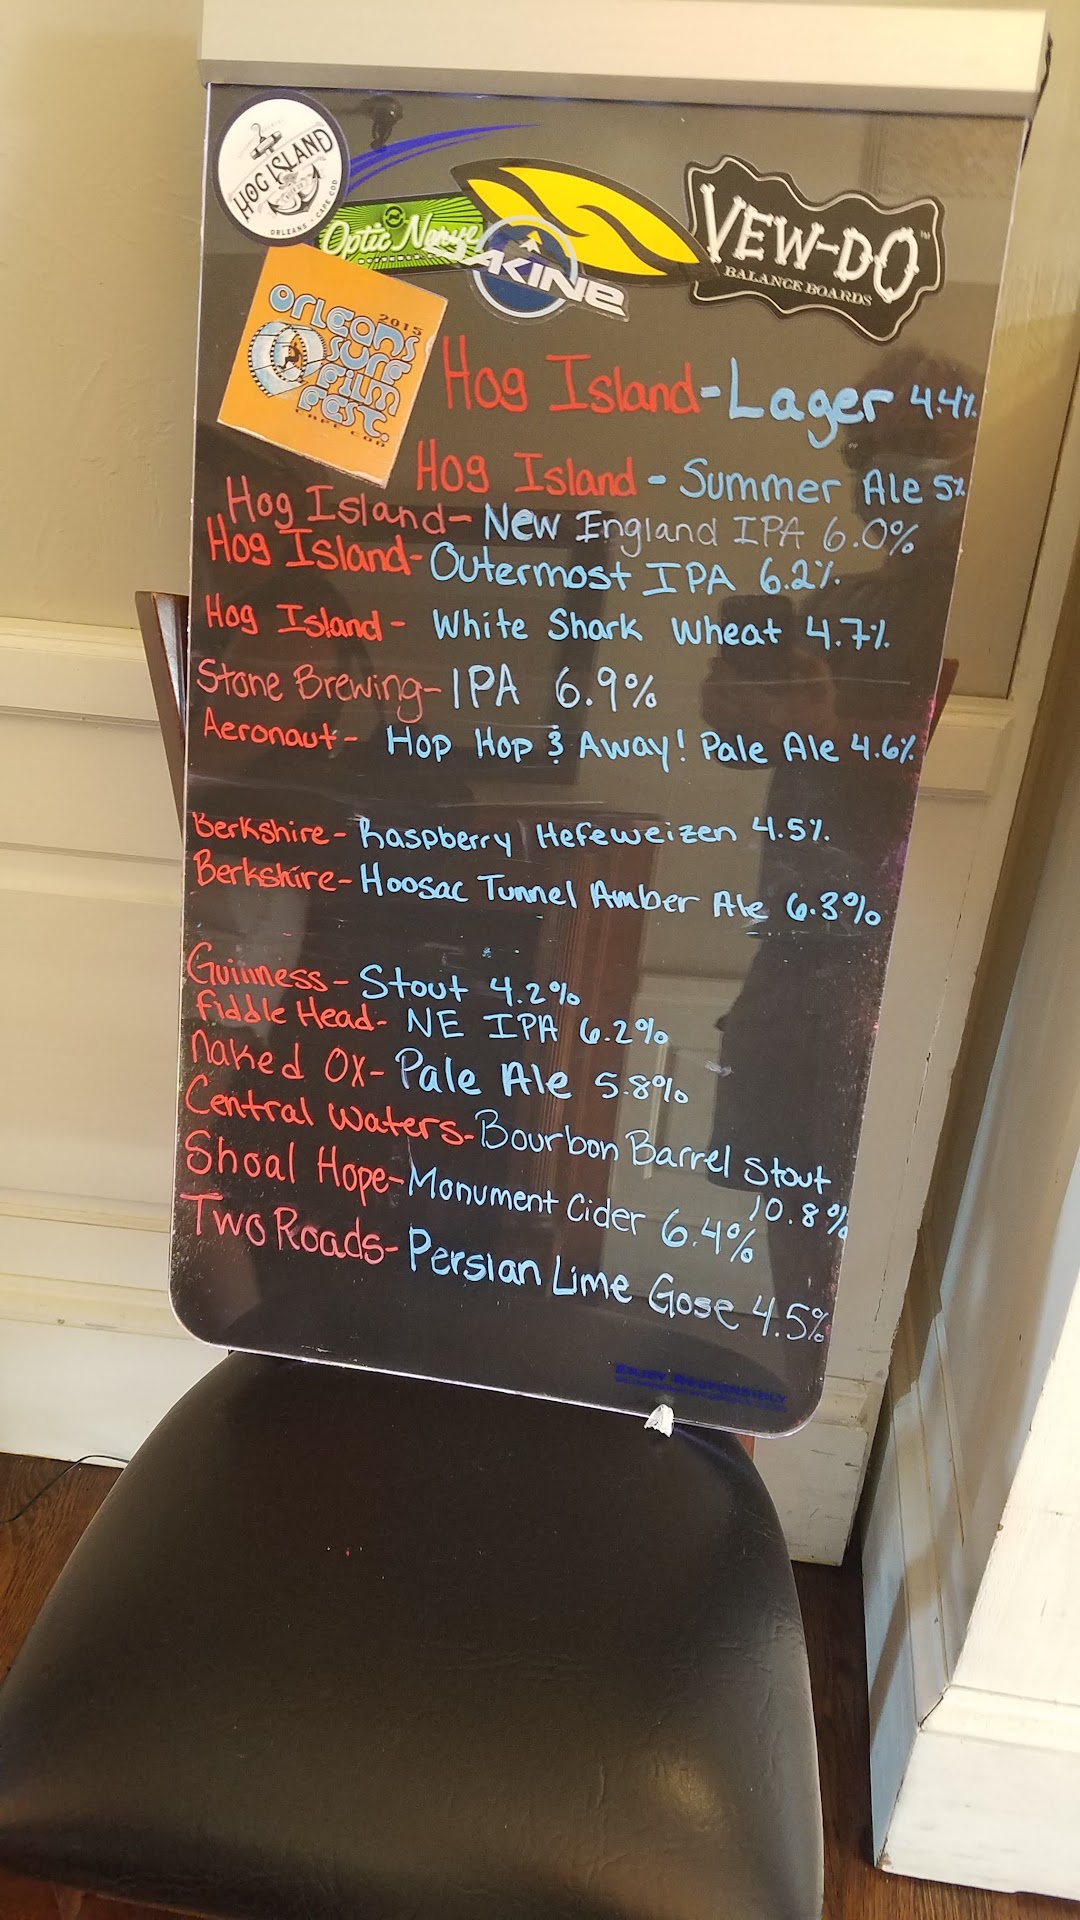 HOG ISLAND
ORLEANS - CAPE COD
Optic Nerve
DAKINE
VEW-DO™
BALANCE BOARDS
2015
ORLEANS
SURF
FILM
FEST.
CAPE COD
Hog Island - Lager 4.4%
Hog Island - Summer Ale 5%
Hog Island - New England IPA 6.0%
Hog Island - Outermost IPA 6.2%
Hog Island - White Shark Wheat 4.7%
Stone Brewing - IPA 6.9%
Aeronaut - Hop Hop & Away! Pale Ale 4.6%
Berkshire - Raspberry Hefeweizen 4.5%
Berkshire - Hoosac Tunnel Amber Ale 6.3%
Guinness - Stout 4.2%
Fiddle Head - NE IPA 6.2%
Naked Ox - Pale Ale 5.8%
Central Waters - Bourbon Barrel Stout
10.8%
Shoal Hope - Monument Cider 6.4%
Two Roads - Persian Lime Gose 4.5%
ENJOY RESPONSIBLY